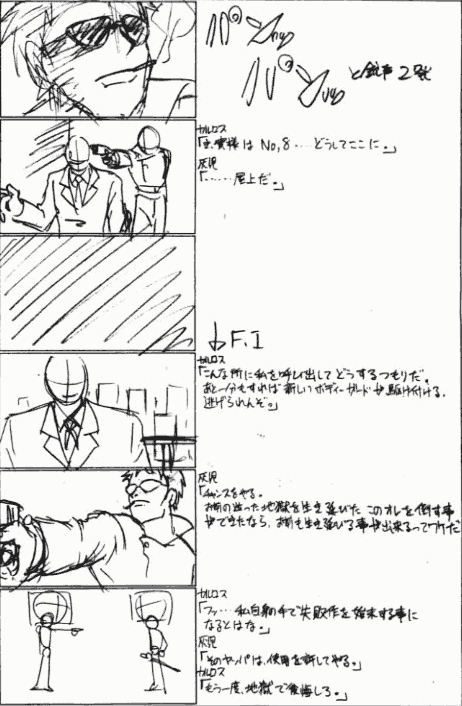 パンッ
パンッ
と銃声2発
カルロス
「き、貴様は No,8‥‥どうしてここに。」
灰児
「‥‥‥屋上だ。」
↓F.I
カルロス
「こんな所に私を呼び出してどうするつもりだ。
あと一分もすれば新しいボディーガードが駆け付ける。
逃げられんぞ。」
灰児
「チャンスをやる。
お前の造った地獄を生き延びた このオレを倒す事
ができたなら、お前も生き延びる事が出来るってワケだ
カルロス
「フッ‥‥私自身の手で失敗作を始末する事に
なるとはな。」
灰児
「そのヤッパは、使用を許してやる。」
カルロス
「もう一度、地獄で後悔しろ。」